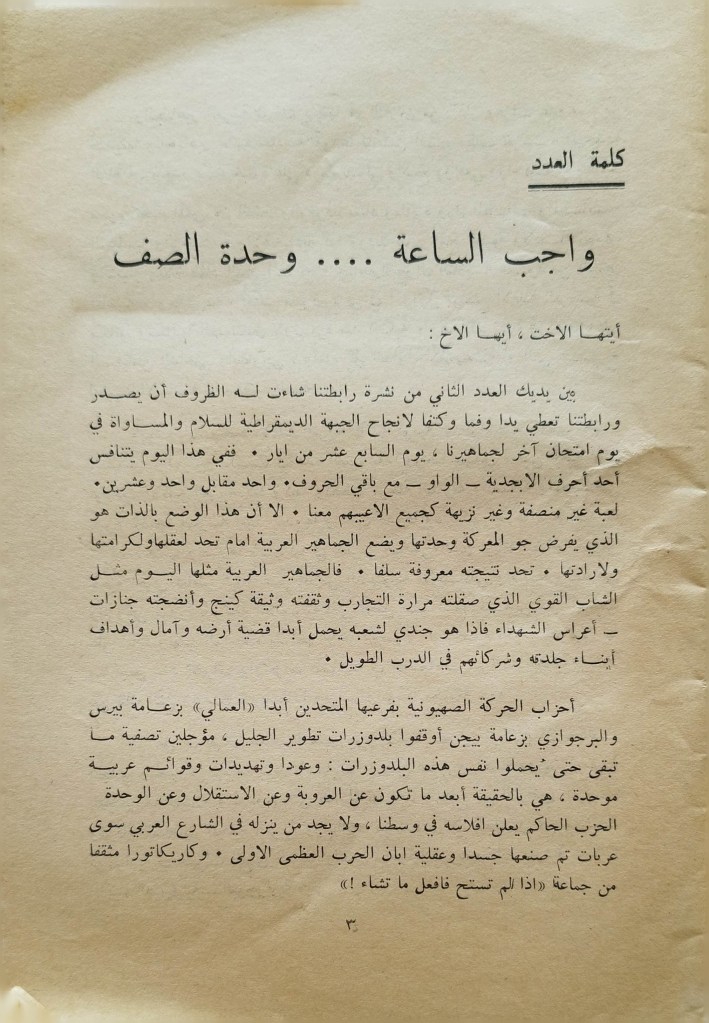 كلمة العدد
واجب الساعة .... وحدة الصف
أيتها الاخت ، أيها الاخ :
بين يديك العدد الثاني من نشرة رابطتنا شاءت له الظروف أن يصدر
ورابطتنا تعطي يدا وفما وكتفا لانجاح الجبهة الديمقراطية للسلام والمساواة في
يوم امتحان آخر لجماهيرنا ، يوم السابع عشر من ايار . ففي هذا اليوم يتنافس
أحد أحرف الابجدية ــ الواو ــ مع باقي الحروف. واحد مقابل واحد وعشرين.
لعبة غير منصفة وغير نزيهة كجميع الاعيبهم معنا . الا أن هذا الوضع بالذات هو
الذي يفرض جو المعركة وحدتها ويضع الجماهير العربية امام تحد لعقلهاولكرامتها
ولارادتها . تحد نتيجته معروفة سلفا . فالجماهير العربية مثلها اليوم مثل
الشاب القوي الذي صقلته مرارة التجارب وثقفته وثيقة كينج وأنضجته جنازات
ــ أعراس الشهداء فاذا هو جندي لشعبه يحمل أبدا قضية أرضه وآمال وأهداف
أبناء جلدته وشركائهم في الدرب الطويل .
أحزاب الحركة الصهيونية بفرعيها المتحدين أبدا «العمالي» بزعامة بيرس
والبرجوازي بزعامة بيجن أوقفوا بلدوزرات تطوير الجليل ، مؤجلين تصفية ما
تبقى حتى يحملوا نفس هذه البلدوزرات : وعودا وتهديدات وقوائم عربية
موحدة ، هي بالحقيقة أبعد ما تكون عن العروبة وعن الاستقلال وعن الوحدة
الحزب الحاكم يعلن افلاسه في وسطنا ، ولا يجد من ينزله في الشارع العربي سوى
عربات تم صنعها جسدا وعقلية ابان الحرب العظمى الاولى . وكاريكاتورا مثقفا
من جماعة «اذا لم تستح فافعل ما تشاء !»
٣